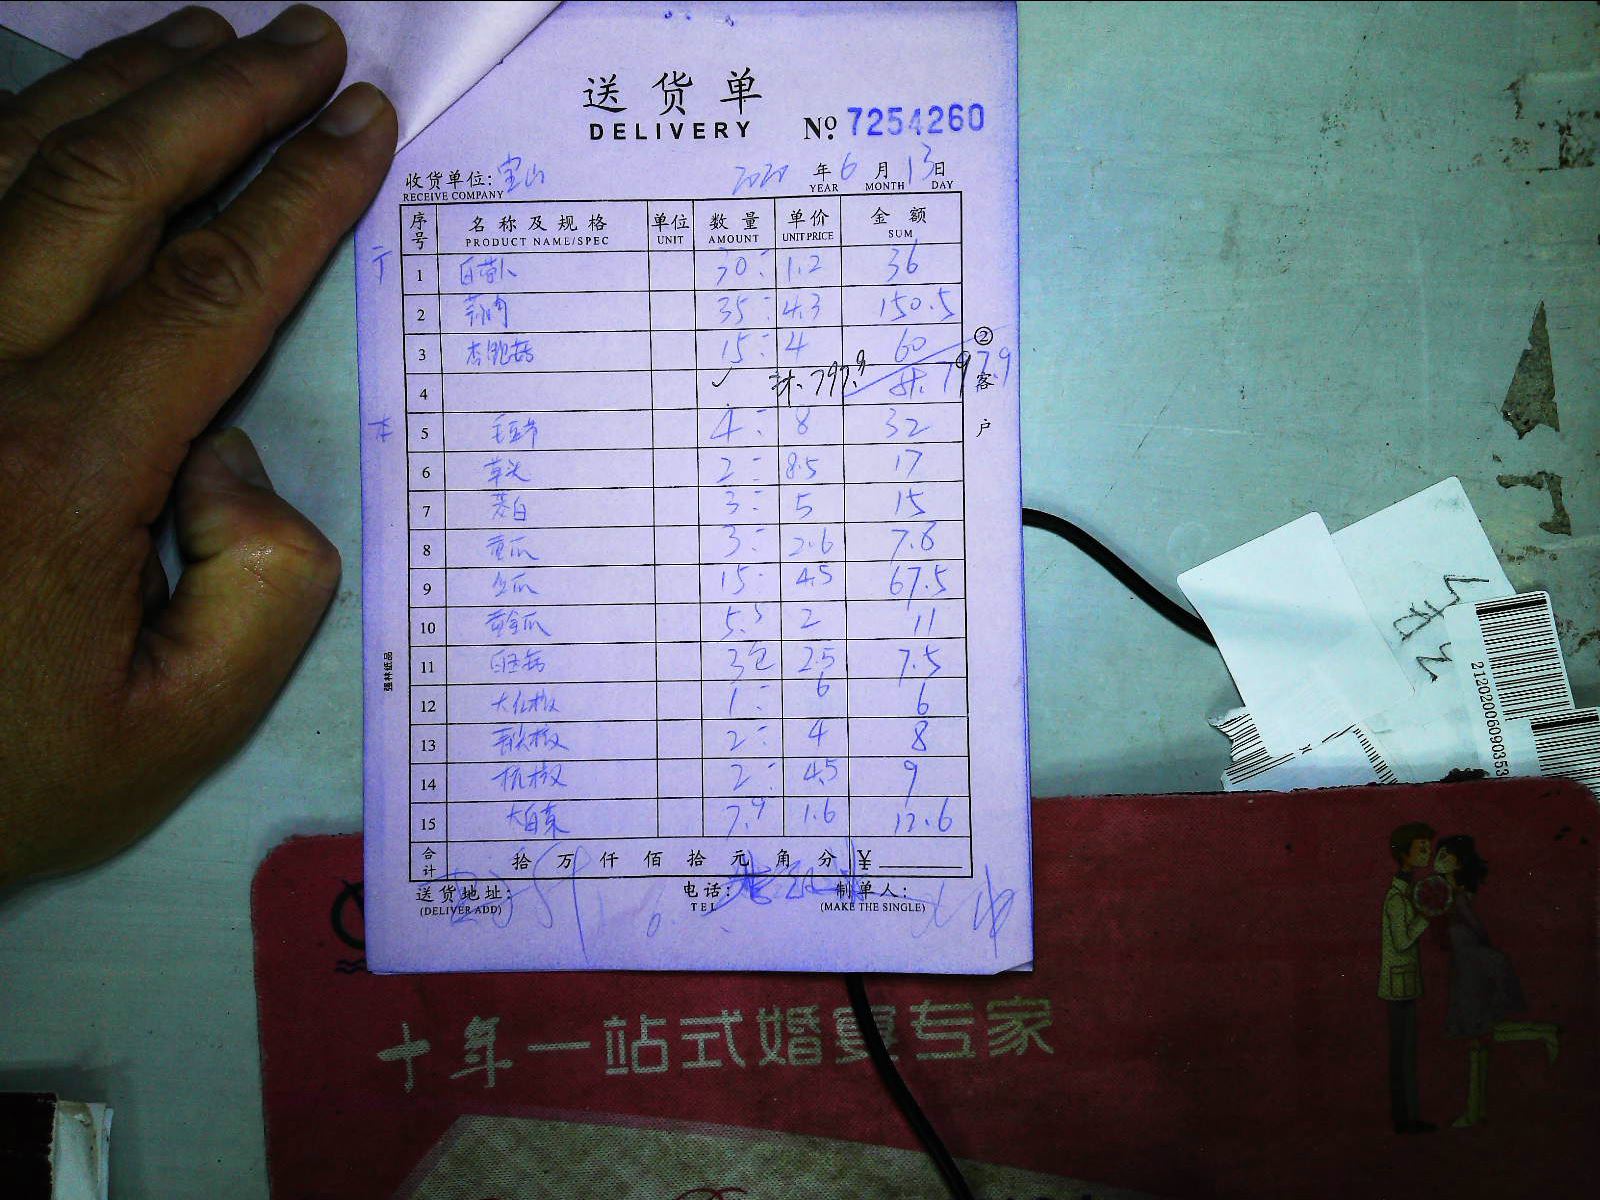 送货单
DELIVERY № 7254260
收货单位: 宝山 2020 年 6 月 13 日
RECEIVE COMPANY YEAR MONTH DAY
序号 名称及规格 单位 数量 单价 金额
PRODUCT NAME/SPEC UNIT AMOUNT UNIT PRICE SUM
1 白萝卜 30 1.2 36
2 35 4.3 150.5
3 杏鲍菇 15 4 60
4 ✓ 计. 797.9 计. 797.9
5 毛豆节 4 8 32
6 草头 2 8.5 17
7 茭白 3 5 15
8 黄瓜 3 2.6 7.8
9 15 4.5 67.5
10 黄金瓜 5.5 2 11
11 白玉菇 3包 2.5 7.5
12 大红椒 1 6 6
13 2 4 8
14 杭椒 2 4.5 9
15 大白菜 7.9 1.6 12.6
合计 拾 万 仟 佰 拾 元 角 分 ¥
送货地址: 电话: 制单人:
(DELIVER ADD) TEL (MAKE THE SINGLE)
②客户
强林纸品
2120200609035
十年一站式婚宴专家